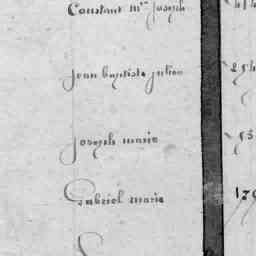 Constant m^ie Joseph
Jean baptiste julien 254
Joseph marie
Gabriel marie 170